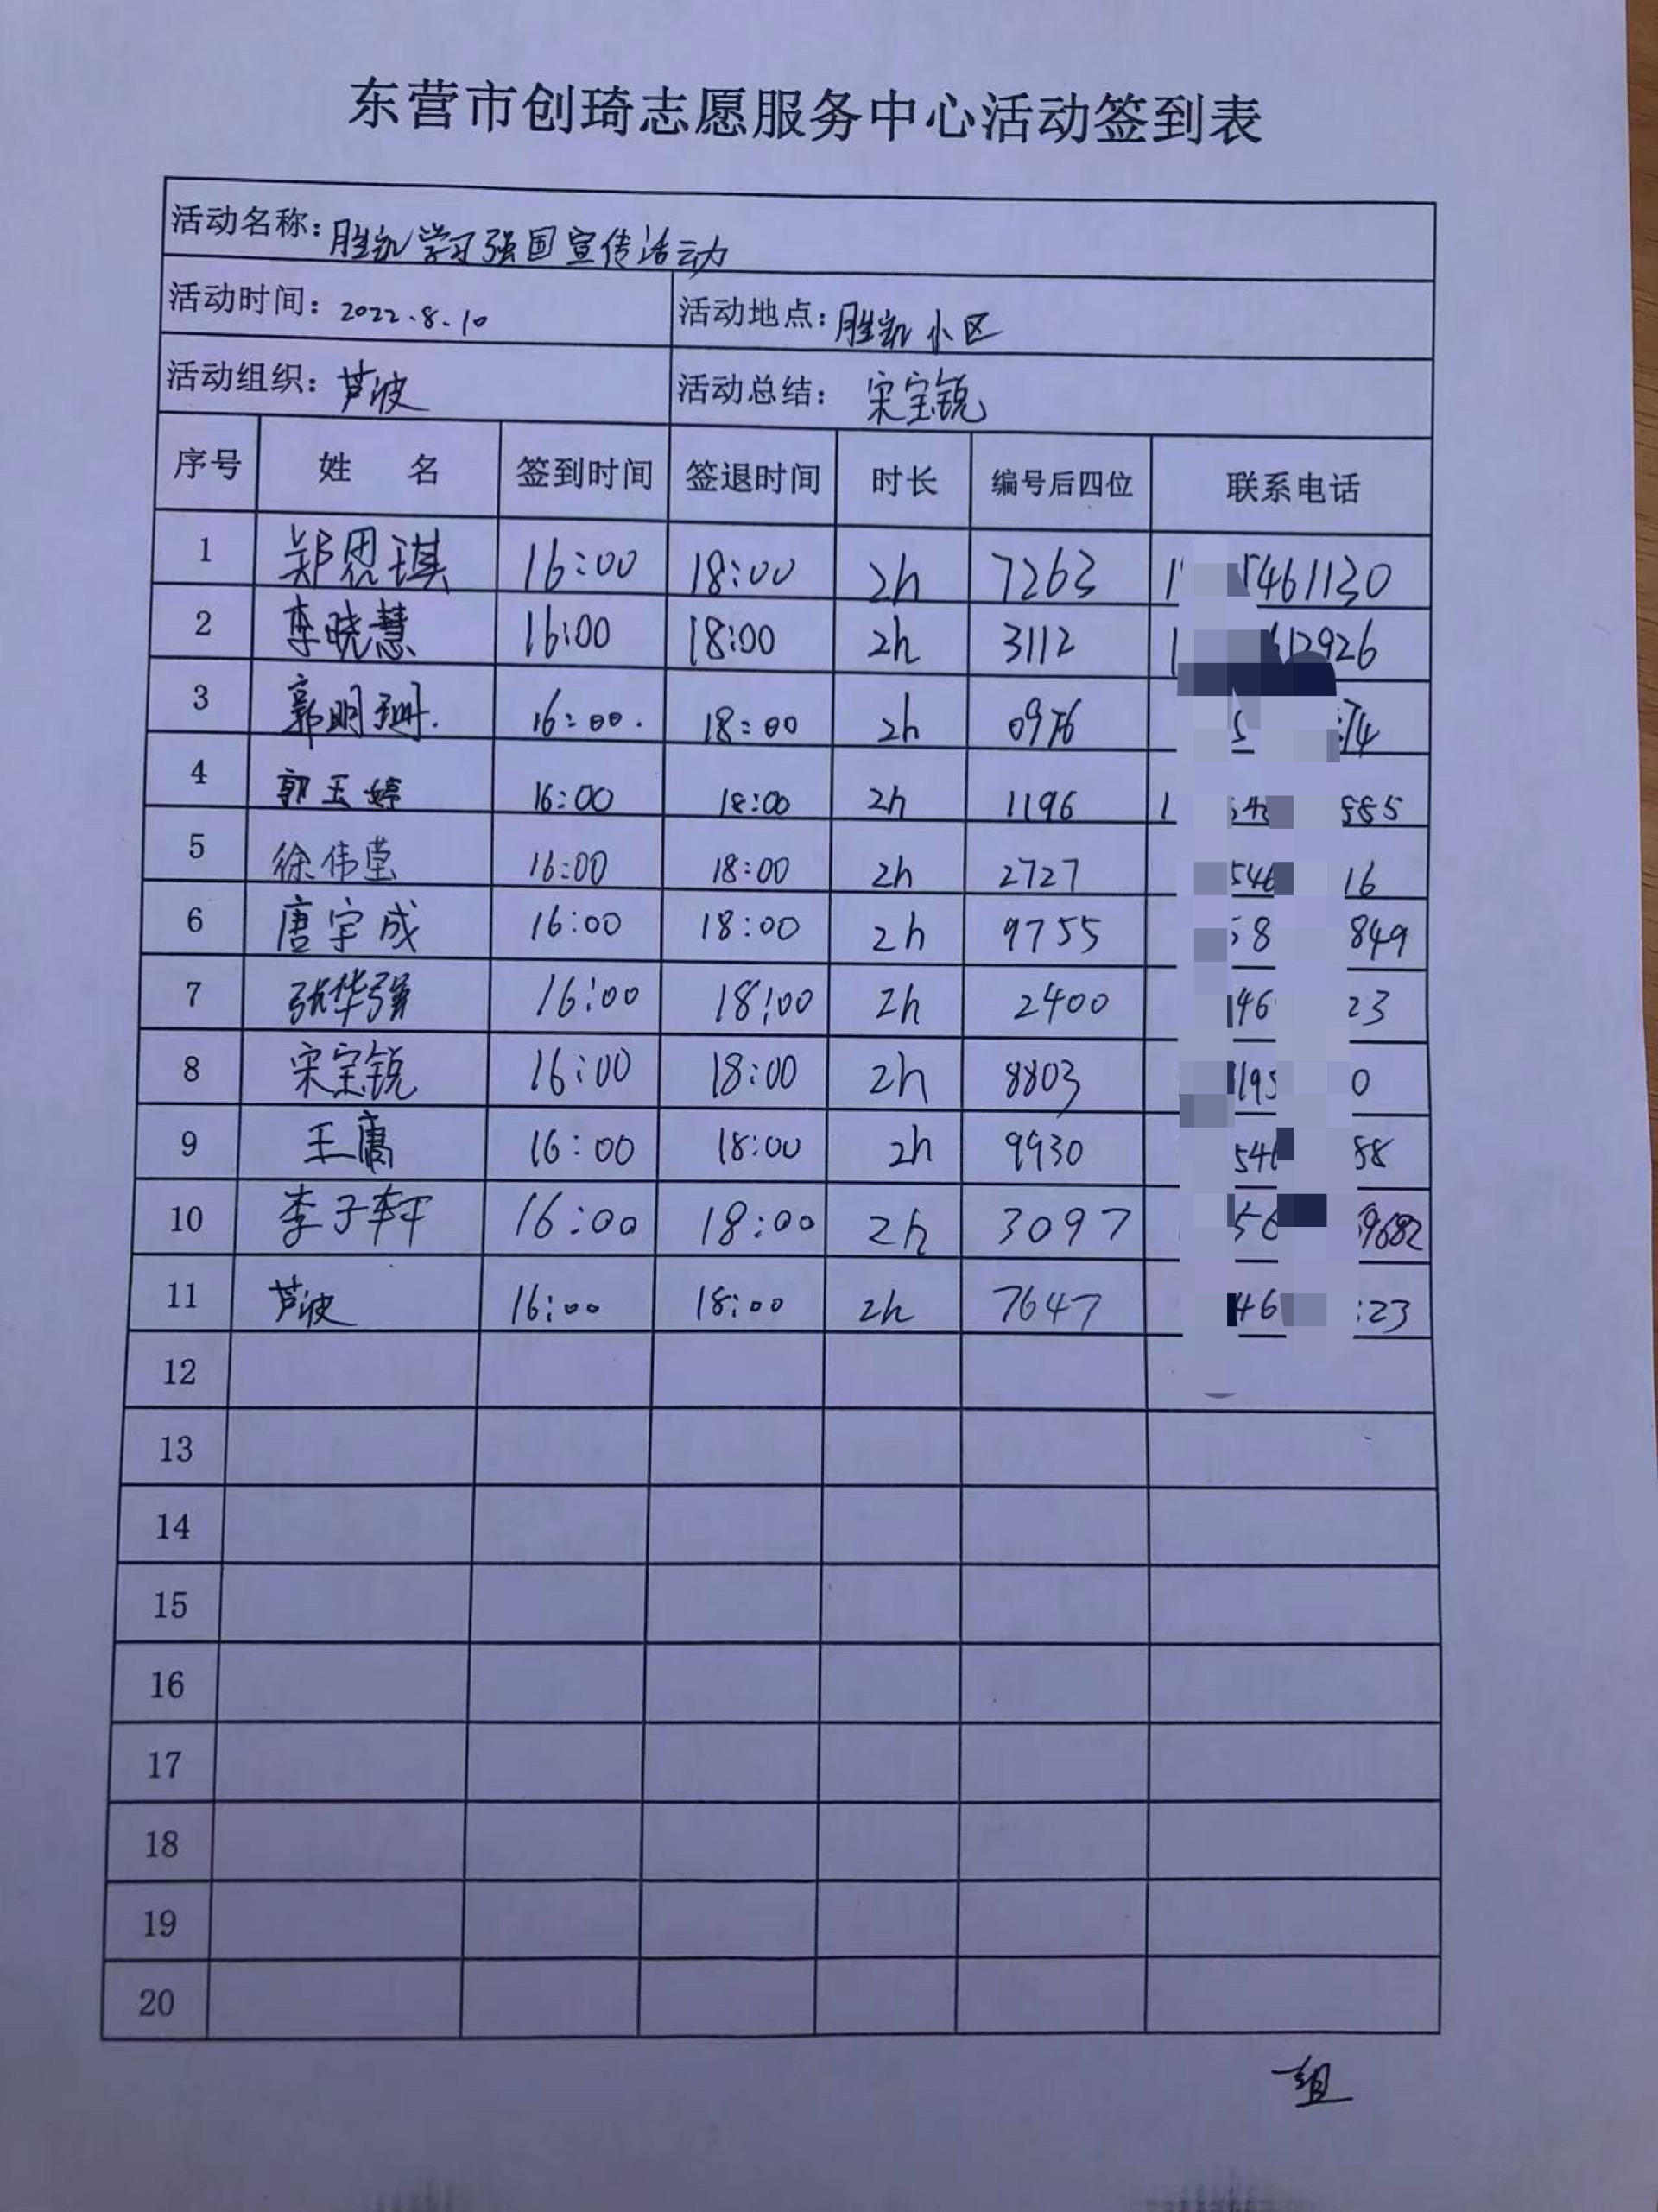 东营市创琦志愿服务中心活动签到表
活动名称：胜凯学习强国宣传活动
活动时间：2022.8.10 活动地点：胜凯小区
活动组织：芦波 活动总结：宋宝锐
序号 姓名 签到时间 签退时间 时长 编号后四位 联系电话
1 郑恩琪 16:00 18:00 2h 7263 1 5461130
2 李晓慧 16:00 18:00 2h 3112 1 612926
3 郭明珊. 16:00. 18:00 2h 0976 5 74
4 郭玉婷 16:00 18:00 2h 1196 1 54 885
5 徐伟莹 16:00 18:00 2h 2727 546 16
6 唐宇成 16:00 18:00 2h 9755 58 849
7 张华强 16:00 18:00 2h 2400 46 23
8 宋宝锐 16:00 18:00 2h 8803 195 0
9 王庸 16:00 18:00 2h 9930 546 88
10 李子轩 16:00 18:00 2h 3097 56 9682
11 芦波 16:00 18:00 2h 7647 46 23
12
13
14
15
16
17
18
19
20
一组